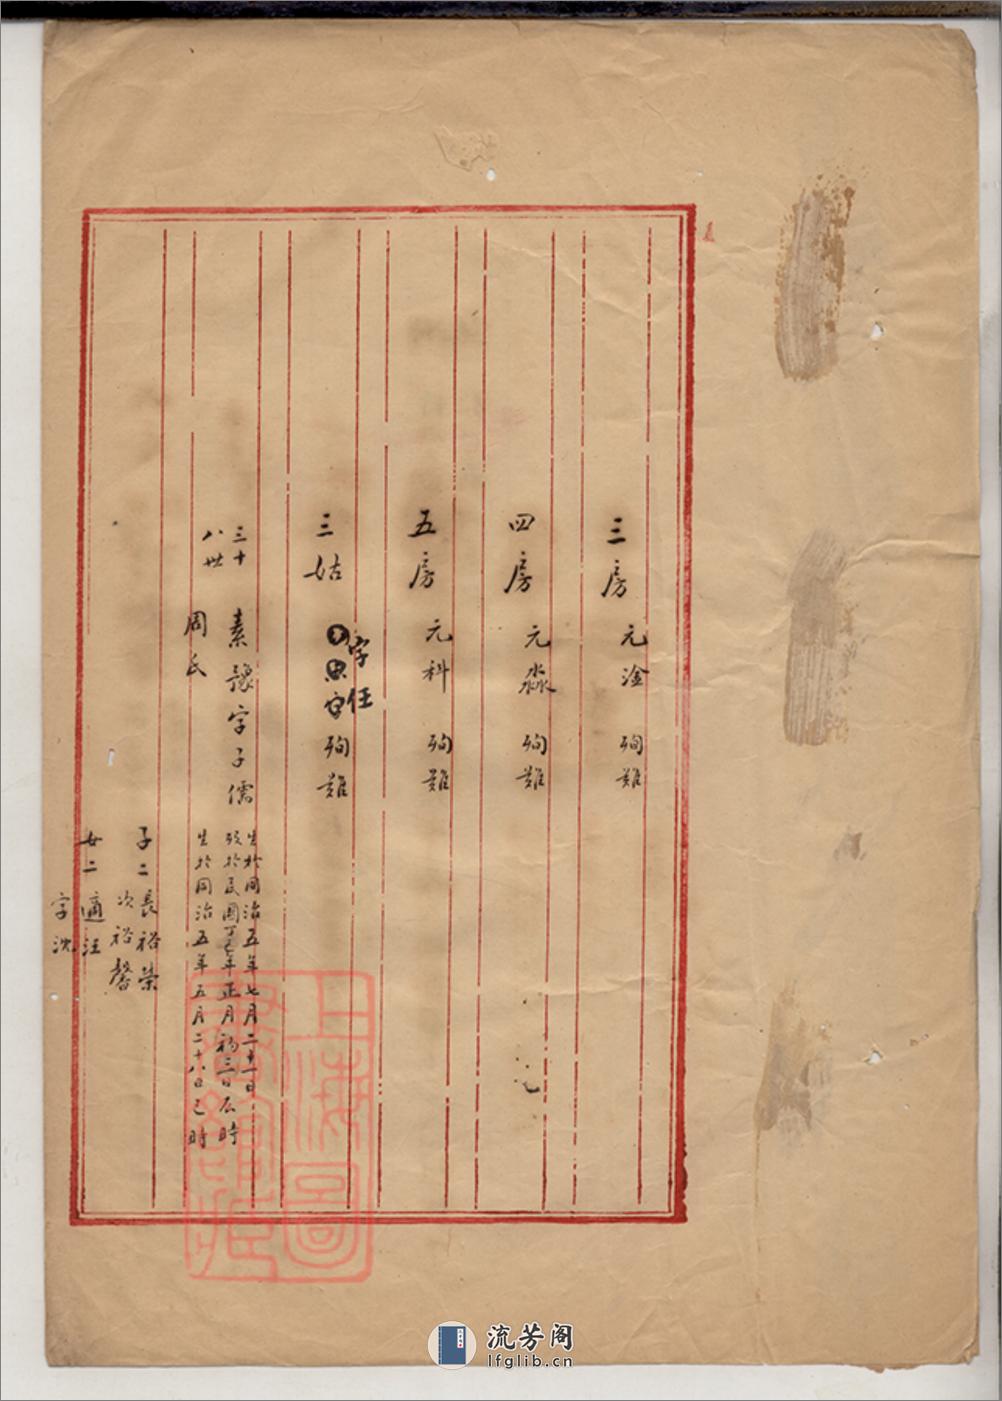 三房 元淦 殉難
四房 元淼 殉難
五房 元科 殉難
字任
三姑 殉難
三十八世
素 字子儒
生於同治五年七月二十一日
歿於民國丁 年正月初三日 時
周氏
生於同治五年五月二十八日巳時
子二 長裕榮
次裕馨
女二 適汪
字沈
上海圖書館藏
流芳阁
lfglib.cn